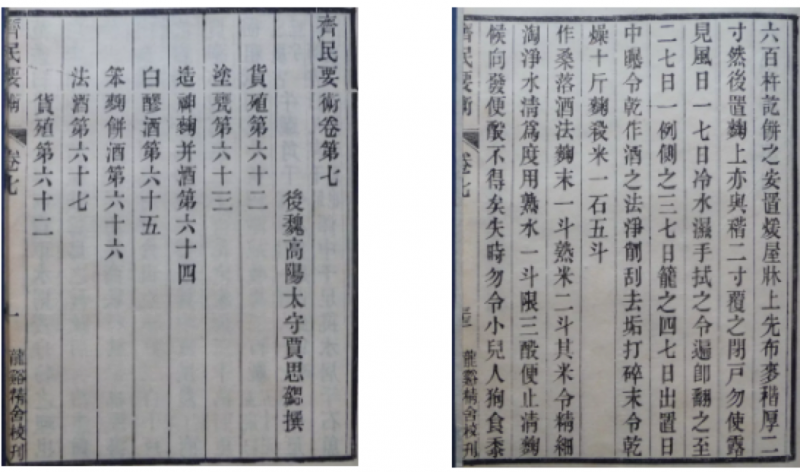 齊民要術卷第七
後魏高陽太守賈思勰撰
貨殖第六十二
塗甕第六十三
造神麴并酒第六十四
白醪酒第六十五
笨麴餅酒第六十六
法酒第六十七
貨殖第六十二
齊民要術 卷七 一 龍谿精舍校刊
六百杵訖餅之安置煖屋牀上先布麥稭厚二
寸然後置麴上亦與稭二寸覆之閉戶勿使露
見風日一七日冷水濕手拭之令遍卽翻之至
二七日一例側之三七日籠之四七日出置日
中曝令乾作酒之法淨削刮去垢打碎末令乾
燥十斤麴殺米一石五斗
作桑落酒法麴末一斗熟米二斗其米令精細
淘淨水清爲度用熟水一斗限三酘便止清麴
候向發便酘不得矣失時勿令小兒人狗食黍
齊民要術 卷七 龍谿精舍校刊